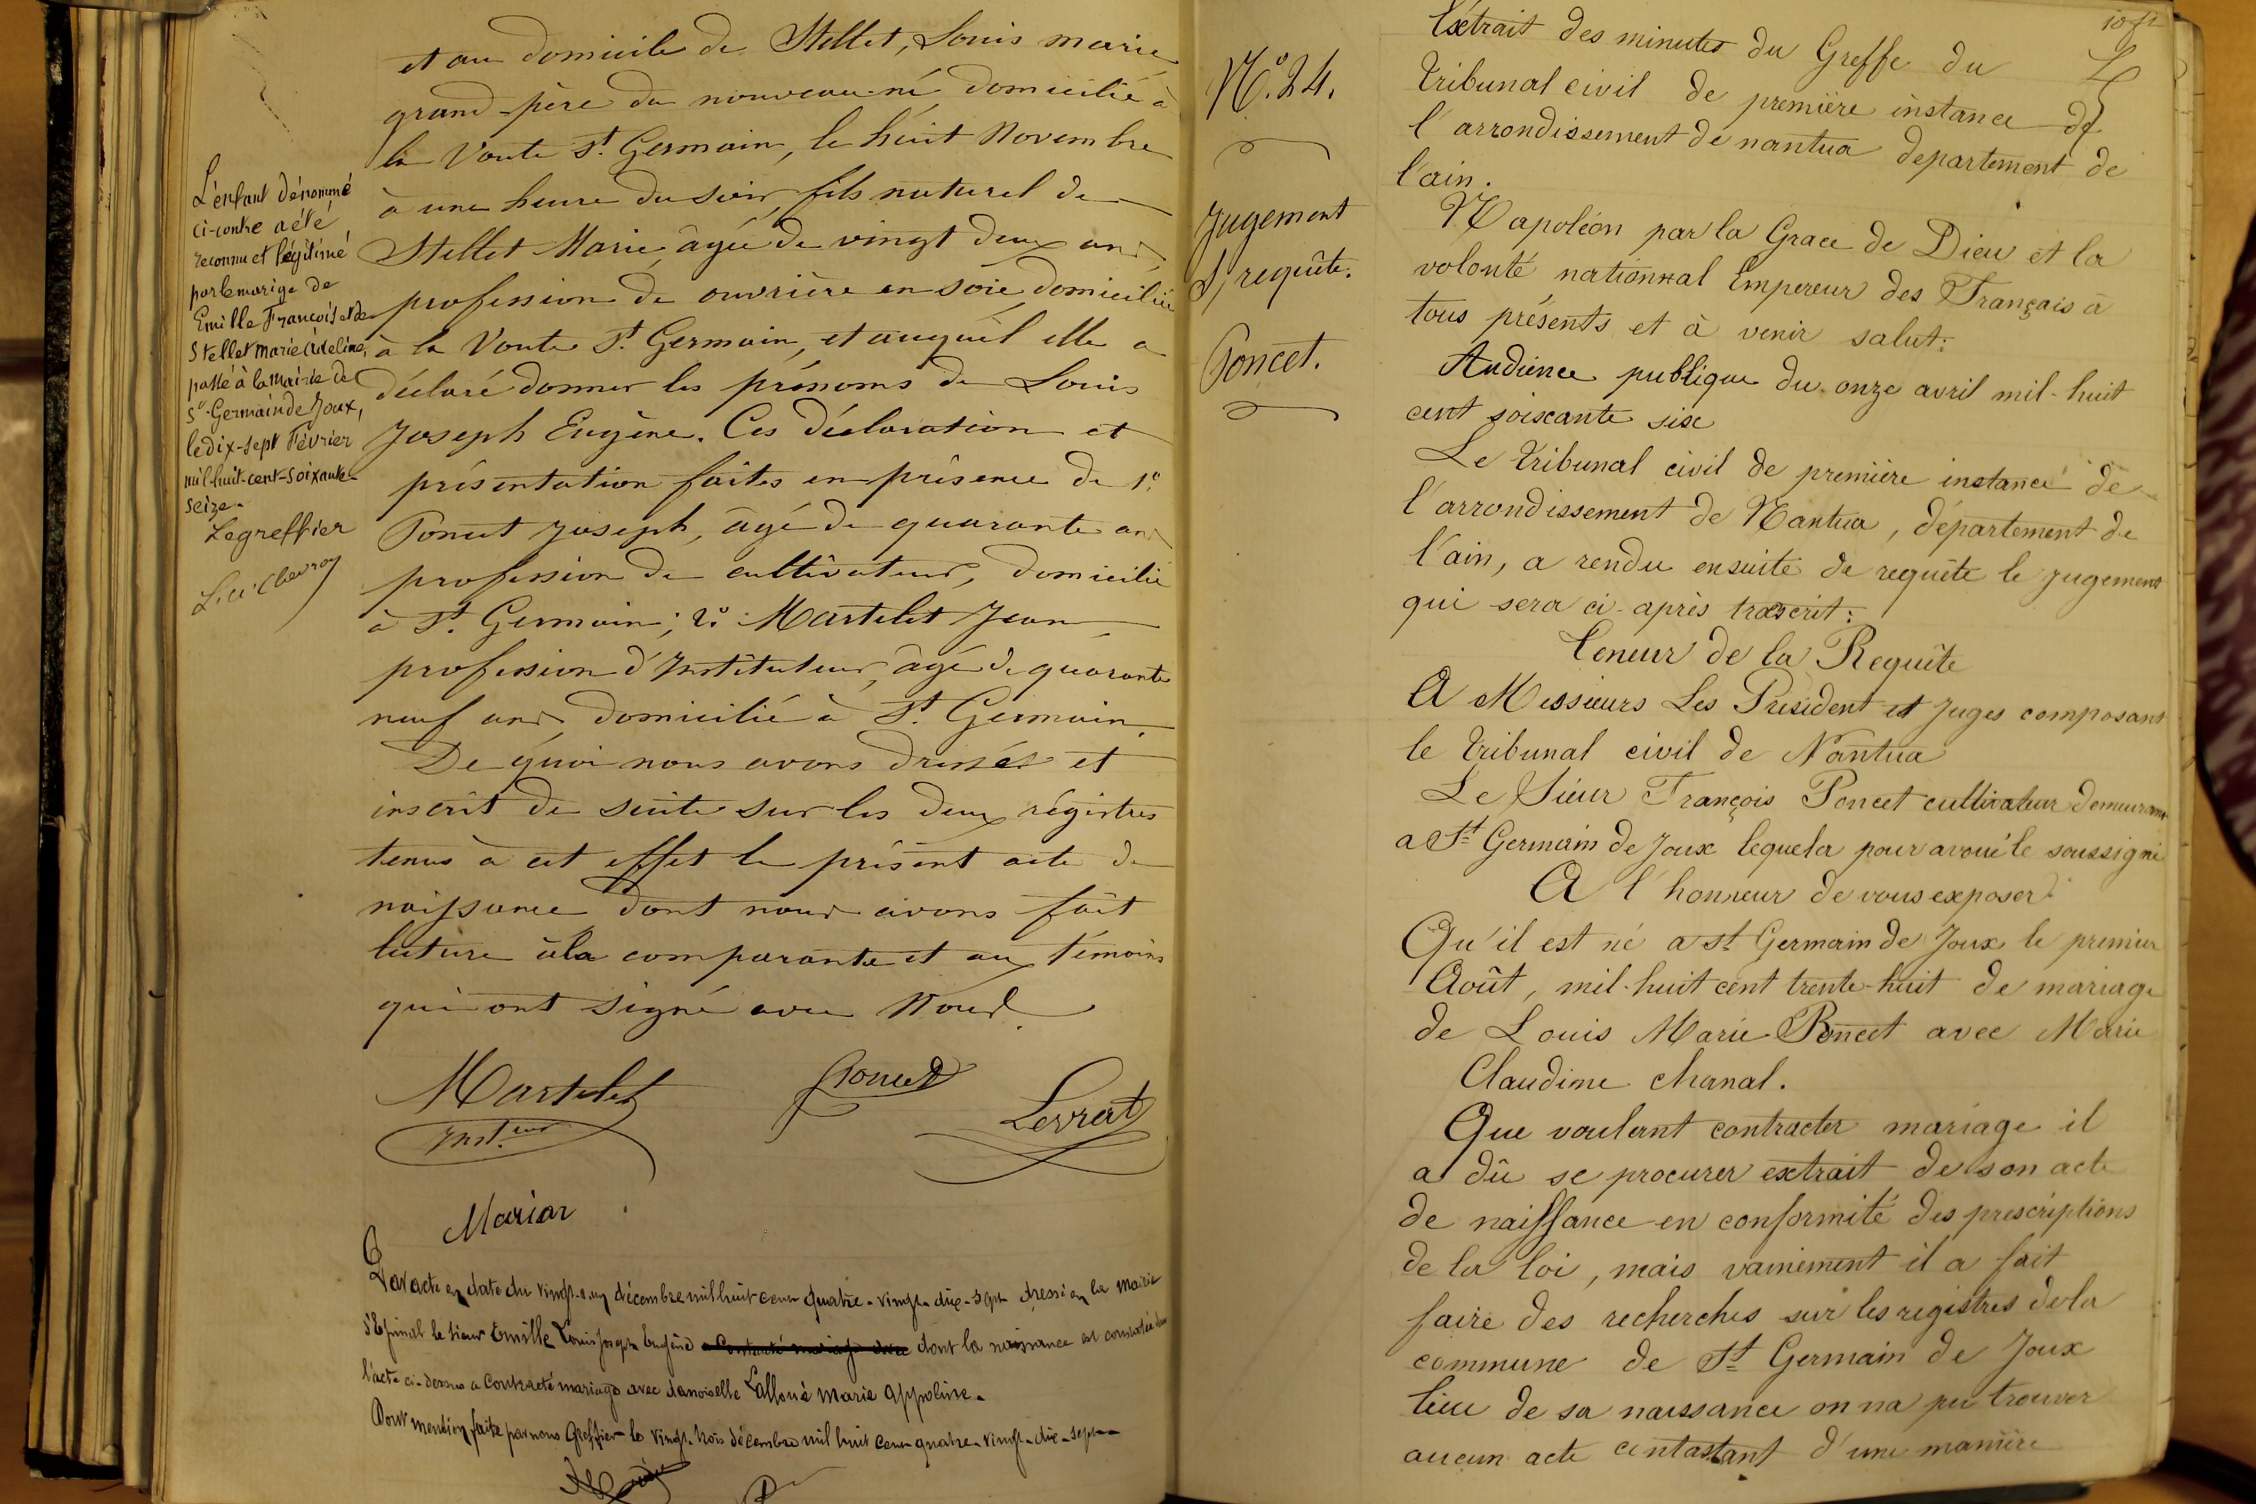 et au domicile de Stellet, Louis marie
grand-père du nouveau-né domicilié à
la Voute St. Germain, le huit Novembre
à une heure du soir, fils naturel de
Stellet Marie, âgée de vingt deux ans,
profession de ouvrière en soie domiciliée
à la Voute St. Germain, et auquel elle a
déclaré donner les prénoms de Louis
Joseph Eugène. Ces déclaration et
présentation faites en présence de 1°
Poncet Joseph, âgé de quarante ans
profession de cultivateur, domicilié
à St. Germain; 2° Martelet Jean,
profession d'Instituteur, âgé de quarante
neuf ans domicilié à St. Germain.
De quoi nous avons dressé et
inscrit de suite sur les deux régistres
tenus à cet effet le présent acte de
naissance dont nous avons fait
lecture à la comparante et aux témoins
qui ont signé avec Nous.
Martelet
Inst.eur
Poncet
Levrat
L'enfant dénommé
ci-contre a été
reconnu et légitimé
par le marige de
Emille François et de
Stellet marie Adeline,
passé à la Mairie de
St-Germain de Joux,
le dix-sept Février
mil-huit-cent-soixante-
seize.
Le greffier
Par acte en date du vingt-un décembre mil huit cent quatre-vingt-dix-sept dressé en la mairie
d'Epinal le sieur Emille Louis Joseph Eugène a contracté mariage avec dont la naissance est constatée dans
l'acte ci-dessus a contracté mariage avec demoiselle Lalloué Marie Appoline.
Dont mention faite par nous Greffier le vingt-trois décembre mil huit cent quatre-vingt-dix-sept
N°. 24.
Jugement
S/ requête.
Poncet.
Extrait des minutes du Greffe du
tribunal civil de première instance de
l'arrondissement de nantua departement de
l'ain.
Napoléon par la Grace de Dieu et la
volonté nationnal Empereur des Français à
tous présents et à venir salut:
Audience publique du onze avril mil-huit
cent soixante six
Le tribunal civil de première instance de
l'arrondissement de Nantua, département de
l'ain, a rendu ensuite de requête le jugement
qui sera ci-après trascrit:
Teneur de la Requête
A Messieurs Les Président et Juges composant
le tribunal civil de Nantua
Le Sieur François Poncet cultivateur demeurant
a St Germain de Joux lequel a pour avoué le soussigné
A l'honneur de vous exposer
Qu'il est né a St Germain de Joux le premier
Août, mil-huit cent trente-huit de mariage
de Louis Marie Poncet avec Marie
Claudine chanal.
Que voulant contracter mariage il
a dû se procurer extrait de son acte
de naissance en conformité des prescriptions
de la loi, mais vainement il a fait
faire des recherches sur les registres de la
commune de St Germain de Joux
lieu de sa naissance on na pu trouver
aucun acte contastant d'une manière